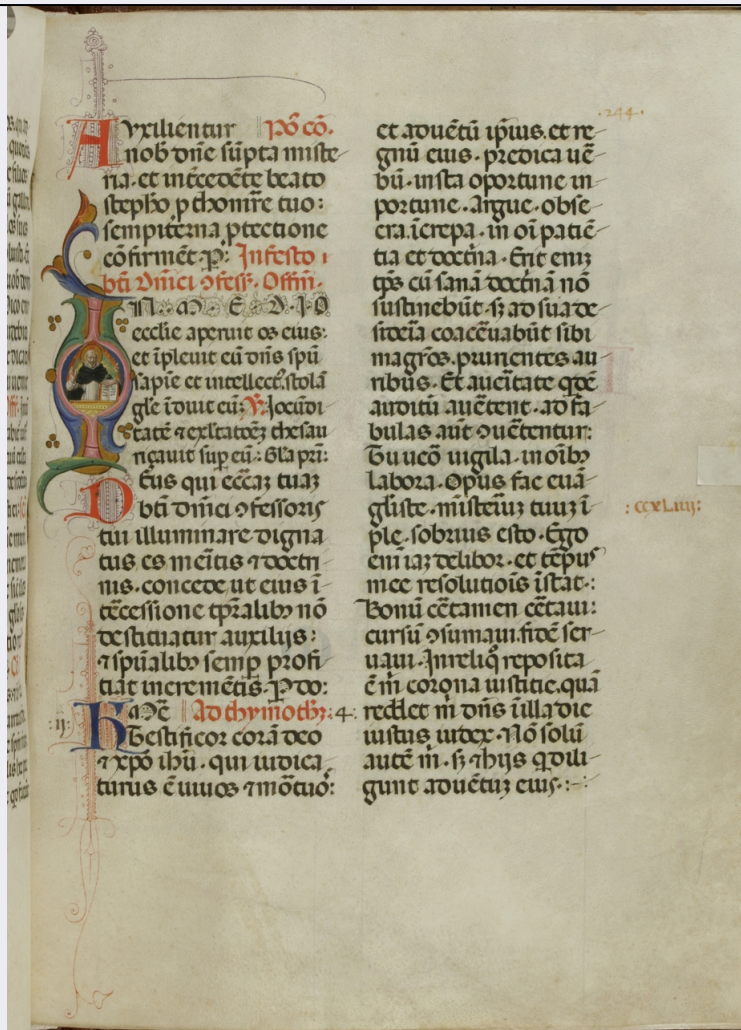 ·244·
Auxilientur Põ cõ.
nob dñe sũpta miste
ria·et intcedẽte beato
stepħo p thomĩre tuo:
sempiterna ptectione
cõfirmẽt·P: In festo
bti Dñici ɔfess. Offm̃.
IN·M·E·D·I·O
ecclie aperuit os eius:
et ĩpleuit eũ dñs spũ
sapie et intellect᷒. stolã
gl̃e ĩduit eũ: V. Jocũdi
tatẽ ⁊ exl̃tatõeʒ thesau
riçauit sup eũ: Gl̃a pri:
Deus qui eccãʒ tuaʒ
bti dñici ɔfessoris
tui illuminare digna
tus es meĩtis ⁊ doctri
nis·concede ut eius ĩ
tcessione tp̃ralibʒ nõ
destituatur auxilijs:
⁊ sp̃ualibʒ semp profi
ciat incremẽtis·P do:
Kãme Ad thymothʒ: 4·
:ij:
Testificor corã deo
⁊ xp̃o ihũ·qui iudica
turus ẽ uiuos ⁊ mõtuoʼ:
et aduẽtũ ip̃ius.et re
gnũ eius·predica uẽ
bũ·insta oportune in
portune·Argue·obse
cra.ĩcrepa·in oĩ patiẽ
tia et doctña·Erit eniʒ
tp̃s cũ sanã doctñã nõ
sustinebũt·sʒ ad sua de
sideĩa coacẽuabũt sibi
magr̃os.prurientes au
ribus·Et aueĩtate qdẽ
auditũ auẽtent·ad fa
bulas aũt ɔuẽtentur:
Tu ueõ uigila·in oĩbʒ
labora·Opus fac euã
gliste·misteĩuʒ tuuʒ ĩ
: ccxLiiij:
ple·sobrius esto·Ego
eni iaʒ delibor·et tẽpus
mee resolutiõis ĩstat·:
Bonũ cẽtamen cẽtaui:
cursũ ɔsumaui.fidẽ ser
uaui·In reliq̃ reposita
ẽ m̃ corona iustitie.quã
reddet m̃ dñs ĩ illa die
iustus iudex·Nõ solũ
autẽ m̃·sʒ ⁊ hijs q dili
gunt aduẽtuʒ eius·:·